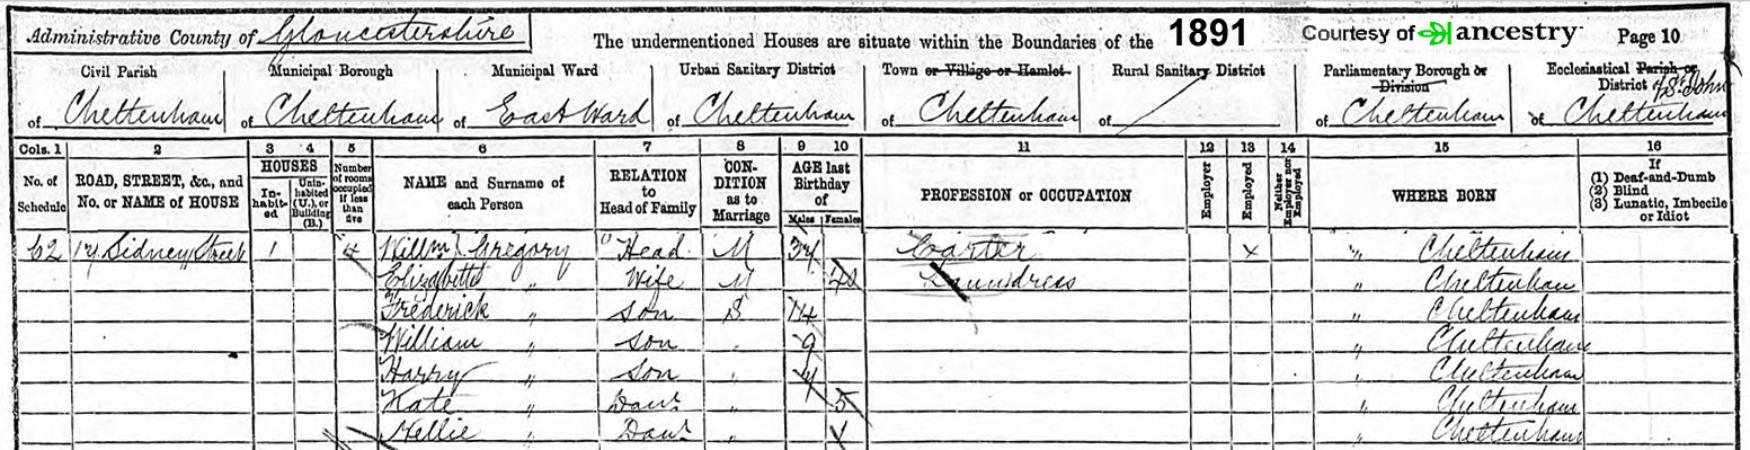 Administrative County of Gloucestershire The undermentioned Houses are situate within the Boundaries of the 1891 Courtesy of ancestry Page 10
Civil Parish Municipal Borough Municipal Ward Urban Sanitary District Town or Village or Hamlet Rural Sanitary District Parliamentary Borough or Division Ecclesiastical Parish or District of St John
of Cheltenham of Cheltenham of East Ward of Cheltenham of Cheltenham of of Cheltenham of Cheltenham
Cols. 1 2 3 4 5 6 7 8 9 10 11 12 13 14 15 16
No. of Schedule ROAD, STREET, &c., and No. or NAME of HOUSE HOUSES Inhabited Uninhabited (U.), or Building (B.) Number of rooms occupied if less than five NAME and Surname of each Person RELATION to Head of Family CONDITION as to Marriage AGE last Birthday of Males Females PROFESSION or OCCUPATION Employer Employed Neither Employer nor Employed WHERE BORN If (1) Deaf-and-Dumb (2) Blind (3) Lunatic, Imbecile or Idiot
62 17 Sidney Street 1 4 Willm J. Gregory Head M Carter x " Cheltenham
Elizabeth " Wife M Laundress " Cheltenham
Frederick " Son S 14 " Cheltenham
William " Son " 9 " Cheltenham
Harry " Son " " Cheltenham
Kate " Daur " 5 " Cheltenham
Nellie " Daur " " Cheltenham